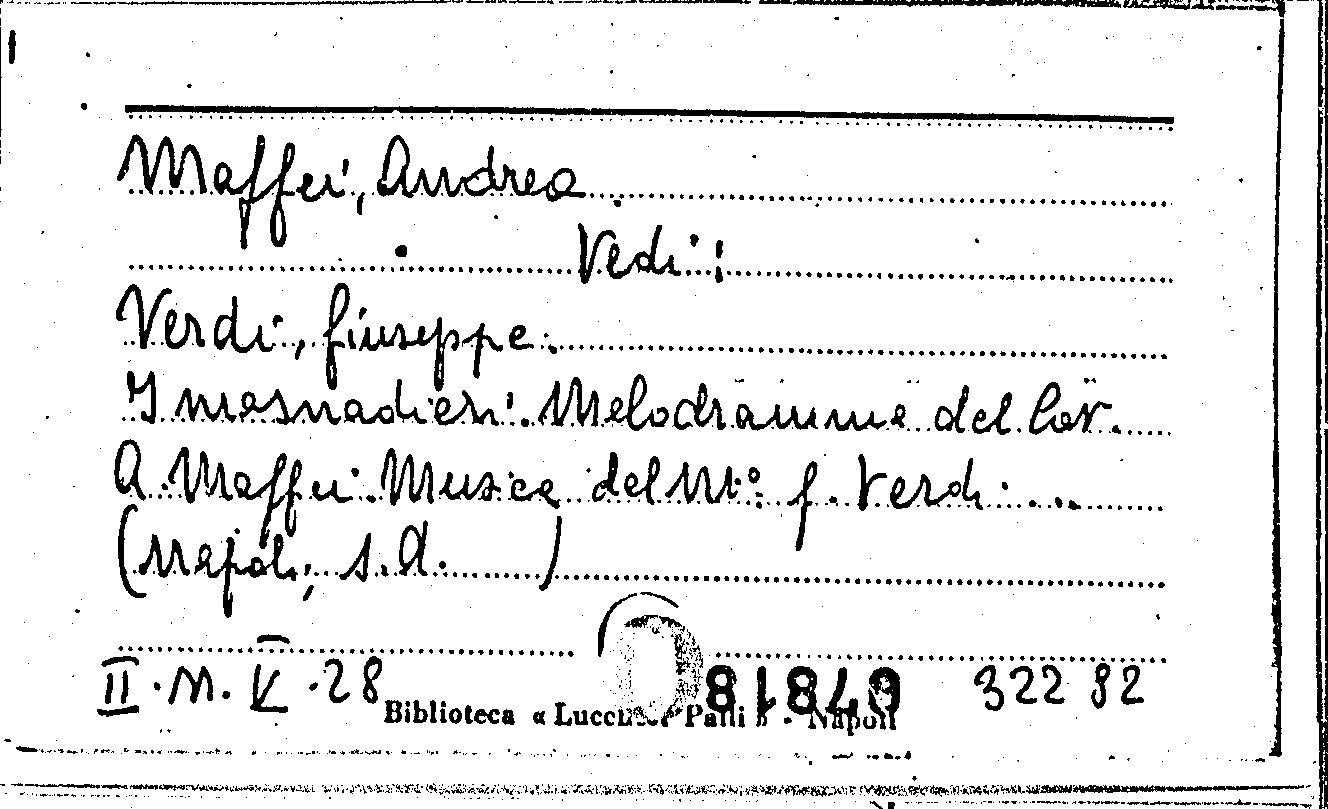 Maffei, Andrea
Vedi:
Verdi, Giuseppe.
I masnadieri. Melodramma del Cav.
A. Maffei. Musica del M.º G. Verdi ...
(Napoli, s.d. )
II.M.V.28
32292
Biblioteca « Lucchesi Palli » - Napoli